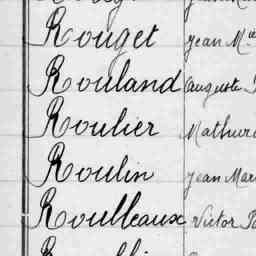 Rouget Jean Mie
Rouland Auguste
Roulier Mathur
Roulin Jean Mar
Roulleaux Victor